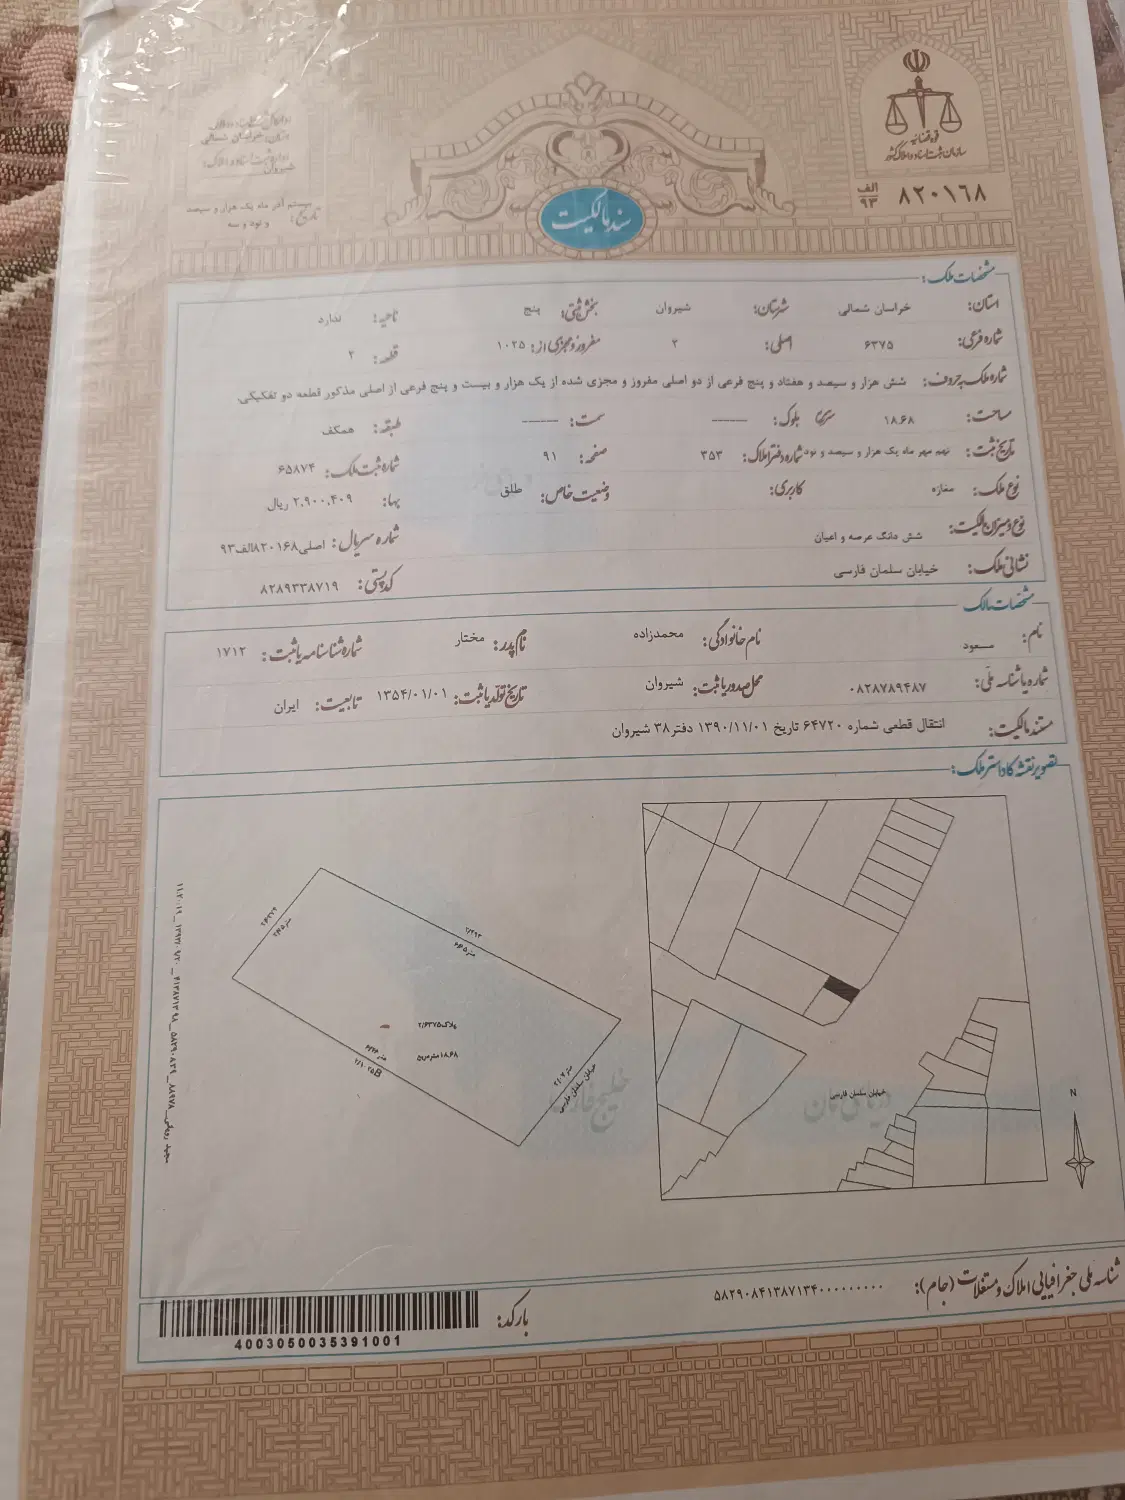 قوه قضائیه
سازمان ثبت اسناد و املاک کشور
الف
۹۳
۸۲۰۱۶۸
خراسان شمالی
شیروان
بیستم آذر ماه یک هزار و سیصد
و نود و سه
تاریخ:
سند مالکیت
مشخصات ملک:
استان: خراسان شمالی شهرستان: شیروان بخش ثبتی: پنج ناحیه: ندارد
شماره فرعی: ۶۳۷۵ اصلی: ۲ مفروز و مجزی از: ۱۰۲۵ قطعه: ۲
شماره ملک به حروف: شش هزار و سیصد و هفتاد و پنج فرعی از دو اصلی مفروز و مجزی شده از یک هزار و بیست و پنج فرعی از اصلی مذکور قطعه دو تفکیکی.
مساحت: ۱۸.۶۸ بلوک: ------ سمت: ------ طبقه: همکف
تاریخ ثبت: نهم مهر ماه یک هزار و سیصد و نود شماره دفتر املاک: ۳۵۳ صفحه: ۹۱ شماره ثبت ملک: ۶۵۸۷۴
نوع ملک: مغازه کاربری: وضعیت خاص: طلق بها: ۲,۹۰۰,۴۰۹ ریال
نوع و میزان مالکیت: شش دانگ عرصه و اعیان شماره سریال: اصلی۸۲۰۱۶۸الف۹۳
نشانی ملک: خیابان سلمان فارسی کدپستی: ۸۲۸۹۳۳۸۷۱۹
مشخصات مالک
نام: مسعود نام خانوادگی: محمدزاده نام پدر: مختار شماره شناسنامه یا ثبت: ۱۷۱۲
شماره یا شناسه ملی: ۰۸۲۸۷۸۹۴۸۷ محل صدور یا ثبت: شیروان تاریخ تولد یا ثبت: ۱۳۵۴/۰۱/۰۱ تابعیت: ایران
مستند مالکیت: انتقال قطعی شماره ۶۴۷۲۰ تاریخ ۱۳۹۰/۱۱/۰۱ دفتر ۳۸ شیروان
تصویر نقشه کاداستر ملک:
پلاک۲/۶۳۷۵
خیابان سلمان فارسی
خیابان سلمان فارسی
خلیج فارس
N
شناسه ملی جغرافیایی املاک و مستغلات (جام): ۵۸۲۹۰۸۴۱۳۸۷۱۳۴۰۰۰۰۰۰۰۰۰۰
بارکد:
4003050035391001